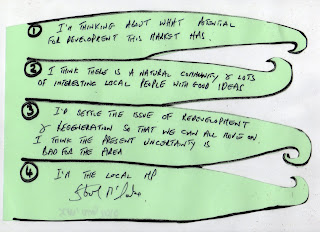 1 I'M THINKING ABOUT WHAT POTENTIAL
FOR DEVELOPMENT THIS MARKET HAS.
2 I THINK THERE IS A NATURAL COMMUNITY & LOTS
OF INTERESTING LOCAL PEOPLE WITH GOOD IDEAS
3 I'D SETTLE THE ISSUE OF REDEVELOPMENT
& REGENERATION SO THAT WE CAN ALL MOVE ON.
I THINK THE PRESENT UNCERTAINTY IS
BAD FOR THE AREA
4 I'M THE LOCAL MP